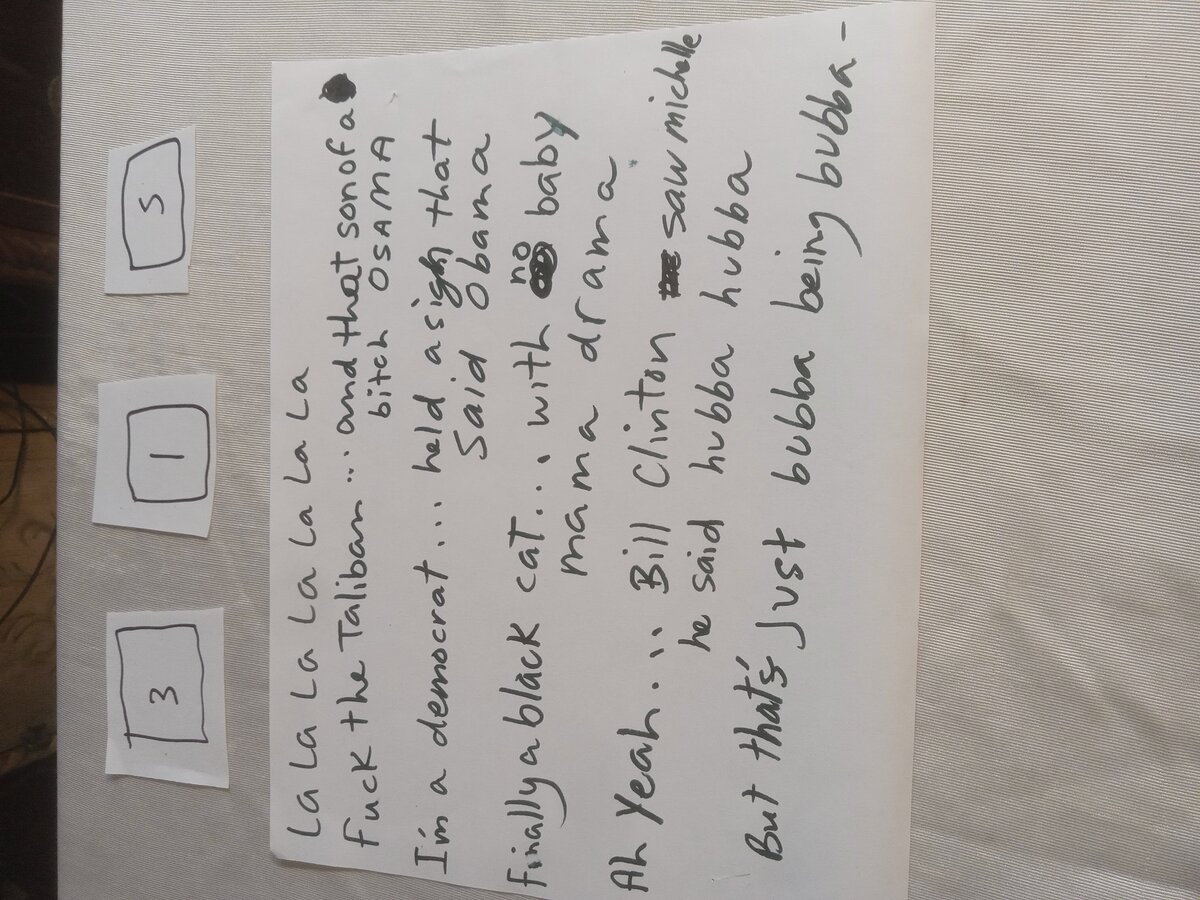 3 1 5
La La La La La La La
Fuck the Taliban... and that son of a
bitch OSAMA
I'm a democrat... held a sign that
said Obama
Finally a black cat... with no baby
mama drama
Ah Yeah... Bill Clinton saw michelle
he said hubba hubba
But that's Just bubba being bubba -